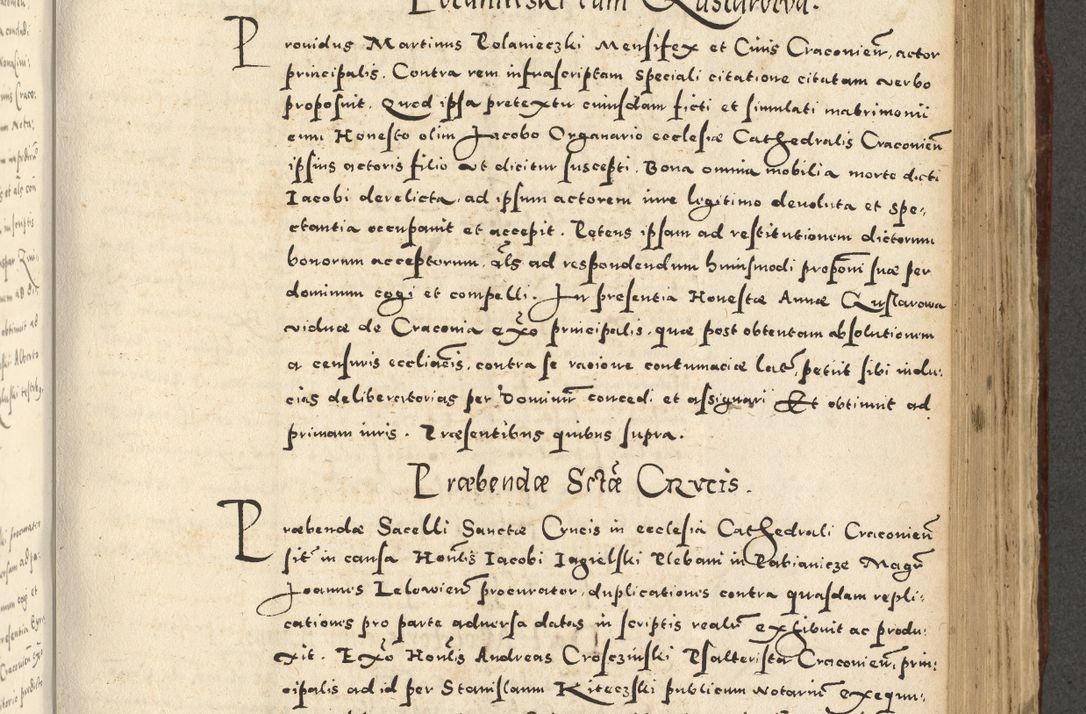 Providus Martinus Polanieczki Mensifex et Civis Craconien̄, actor
principalis. Contra rem infrascriptam speciali citatione citatam verbo
proposuit. Quod ipsa pretextu cuiusdam ficti et simulati matrimonii
cum Honesto olim Jacobo Organario ecclesiæ Cathedralis Craconien̄
ipsius actoris filio ut dicitur suscepti. Bona omnia mobilia morte dicti
Iacobi derelicta, ad ipsum actorem iure legitimo devoluta et spe-
ctantia occupavit et accepit. Petens ipsam ad restitutionem dictorum
bonorum acceptorum. ad respondendum huiusmodi propōni suæ per
dominum cogi et compelli. In presentia Honestæ Annæ Qustarowa
viduæ de Craconia ex̄o principalis, quæ post obtentam absolutionem
a censuris eccliācis, contra se racione contumaciæ lat̄, petiit sibi indu-
cias deliberatorias per Dominū concedi et assignari Et obtinuit ad
primam iuris. Præsentibus quibus supra.
Præbendæ Sctǣ Crucis.
Præbendæ Sacelli Sanctæ Crucis in ecclesia Cathedrali Craconien̄
sit̄ in causa Honl̄is Iacobi Iagielski Plebani in Pabianicze Magr̄
Joannis Lelowien̄ procurator, duplicationes contra quasdam repli-
cationes pro parte adversa datas in scriptis realr̄ exhibuit ac produ-
xit. Ex̄o Honl̄is Andreas Crosczinski Psalterista Craconien̄, prin-
cipalis ad id per Stanislaum Kiteczski publicum Notariū exequu-